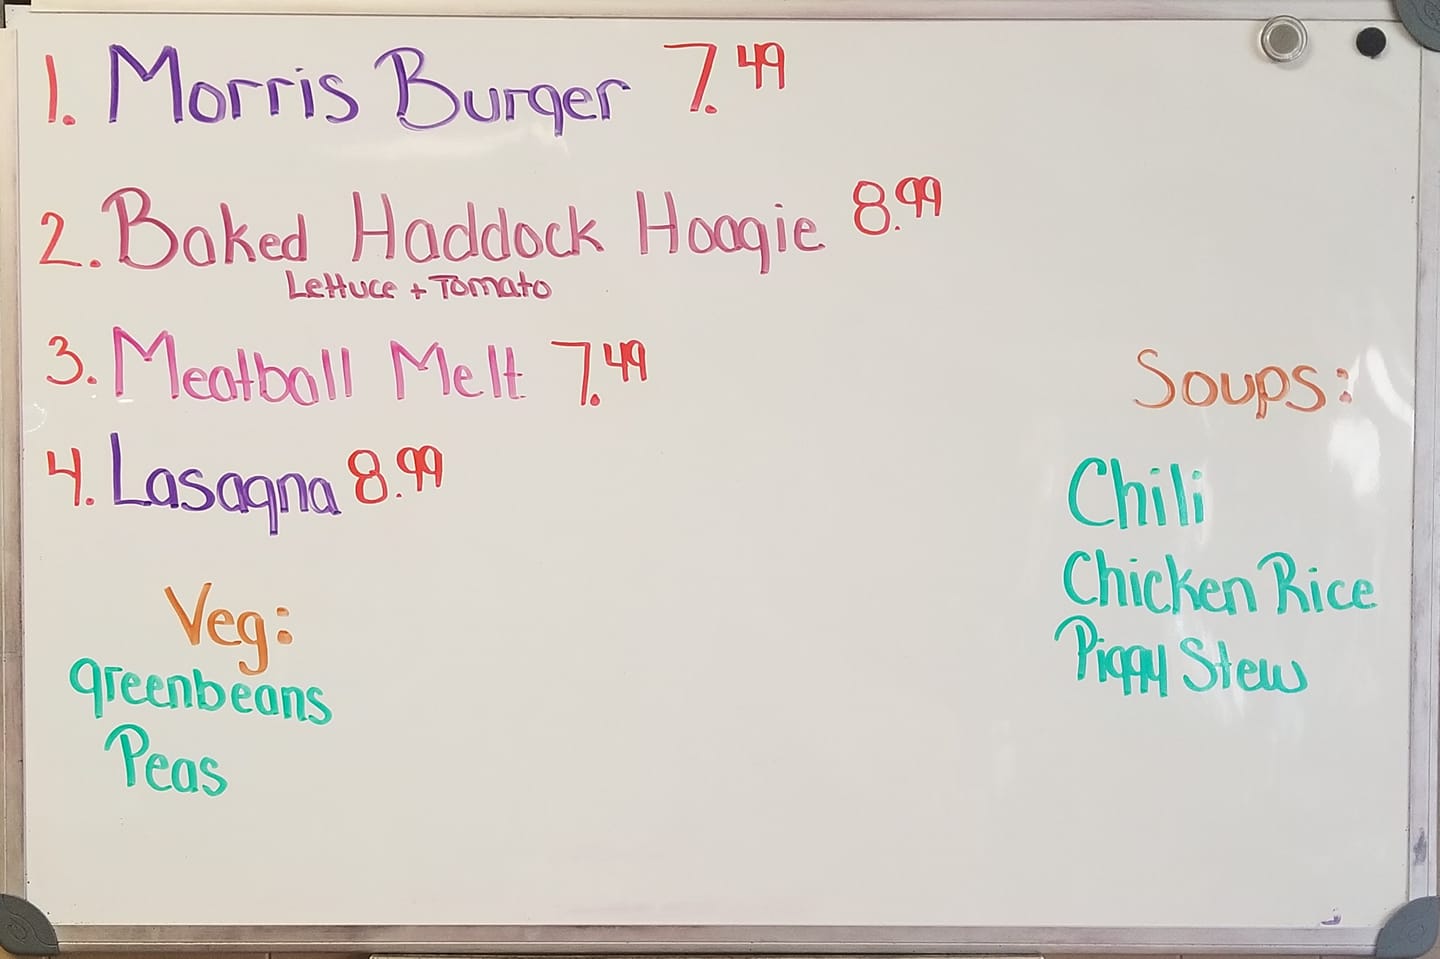 1. Morris Burger 7.49
2. Baked Haddock Hoagie 8.99
Lettuce + Tomato
3. Meatball Melt 7.49
4. Lasagna 8.99
Veg:
greenbeans
Peas
Soups:
Chili
Chicken Rice
Piggy Stew